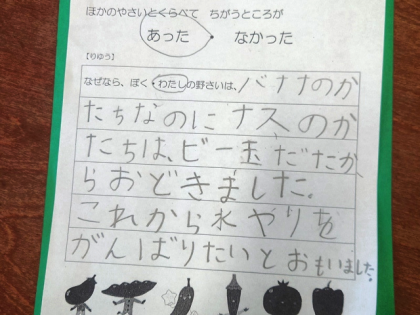 ほかのやさいとくらべて ちがうところが
あった ・ なかった
【りゆう】
なぜなら、ぼく・わたしの野さいは、バナナのか
たちなのにナスのか
たちは、ビー玉だたか
らおどきました。
これから水やりを
がんばりたいとおもいました。